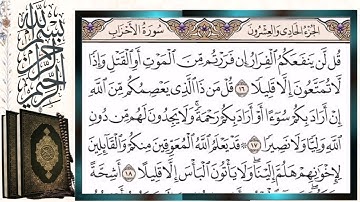 الجزء الحادي والعشرون سورة الأحزاب
قُل لَّن يَنفَعَكُمُ ٱلْفِرَارُ إِن فَرَرْتُم مِّنَ ٱلْمَوْتِ أَوِ ٱلْقَتْلِ وَإِذًا
لَّا تُمَتَّعُونَ إِلَّا قَلِيلًا ١٦ قُلْ مَن ذَا ٱلَّذِي يَعْصِمُكُم مِّنَ ٱللَّهِ
إِنْ أَرَادَ بِكُمْ سُوٓءًا أَوْ أَرَادَ بِكُمْ رَحْمَةً ۚ وَلَا يَجِدُونَ لَهُم مِّن دُونِ
ٱللَّهِ وَلِيًّا وَلَا نَصِيرًا ١٧ ۞ قَدْ يَعْلَمُ ٱللَّهُ ٱلْمُعَوِّقِينَ مِنكُمْ وَٱلْقَآئِلِينَ
لِإِخْوَٰنِهِمْ هَلُمَّ إِلَيْنَا ۖ وَلَا يَأْتُونَ ٱلْبَأْسَ إِلَّا قَلِيلًا ١٨ أَشِحَّةً
بسم الله الرحمن الرحيم